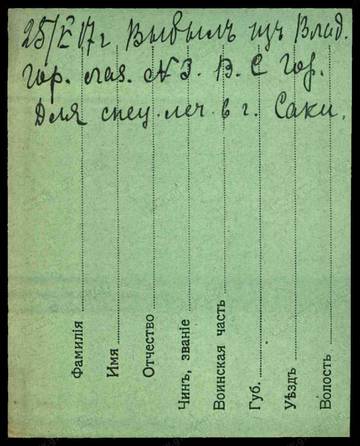 25/V 17 г Выбылъ изъ Влад.
гор. лаз. №3. В. С. Гор.
Для спец. леч. в г. Саки.
Фамилія
Имя
Отчество
Чинъ, званіе
Воинская часть
Губ.
Уѣздъ
Волость